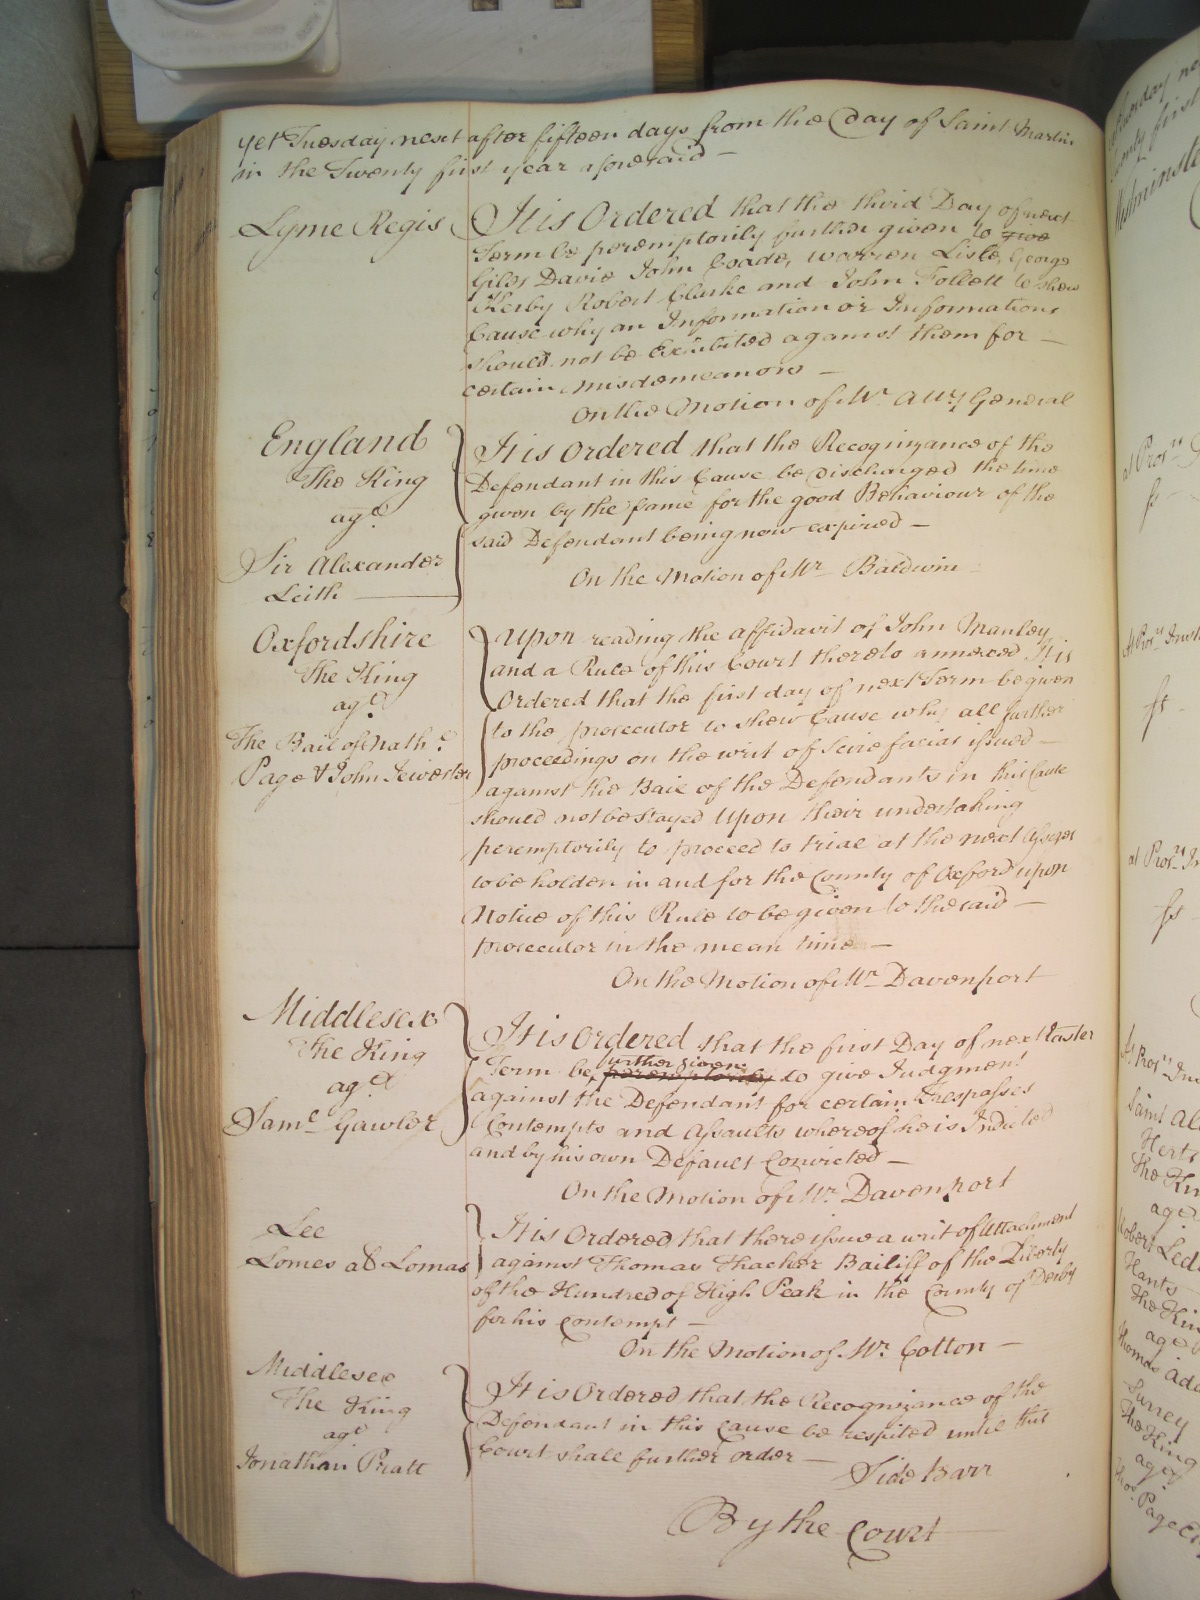 yet Tuesday next after fifteen days from the Day of Saint Martin
in the Twenty first year aforesaid —
Lyme Regis
It is Ordered that the third Day of next
Term be peremptorily further given to Give
Giles Davie John Coade, Warren Lisle, George
Kerby Robert Clarke and John Follett to shew
Cause why an Information or Informations
should not be Exhibited against them for —
certain Misdemeanors —
On the Motion of Mr. Atty General
England
The King
agt.
Sir Alexander
Leith
It is Ordered that the Recognizance of the
Defendant in this Cause be Discharged the time
given by the same for the good Behaviour of the
said Defendant being now expired —
On the Motion of Mr. Baldwin
Oxfordshire
The King
agt.
The Bail of Nath.l
Page & John
Upon reading the affidavit of John Manley
and a Rule of this Court thereto annexed It is
Ordered that the first day of next Term be given
to the prosecutor to shew Cause why all further
proceedings on the writ of Scire facias issued —
against the Bail of the Defendants in this Cause
should not be stayed Upon their undertaking
peremptorily to proceed to trial at the next Assizes
to be holden in and for the County of Oxford upon
Notice of this Rule to be given to the said —
prosecutor in the mean time —
On the Motion of Mr. Davenport
Middlesex
The King
agt.
Saml. Gawler
It is Ordered that the first Day of next Easter
Term be peremptorily further given to give Judgment
against the Defendant for certain Trespasses
Contempts and Assaults whereof he is Indicted
and by his own Default Convicted —
On the Motion of Mr. Davenport
Lee
Lomes als Lomas
It is Ordered that there issue a writ of Attachment
against Thomas Thacker Bailiff of the Liberty
of the Hundred of High Peak in the County of Derby
for his Contempt —
On the Motion of Mr. Cotton —
Middlesex
The King
agt.
Jonathan Pratt
It is Ordered that the Recognizance of the
Defendant in this Cause be respited until this
Court shall further order —
Side Barr
By the Court